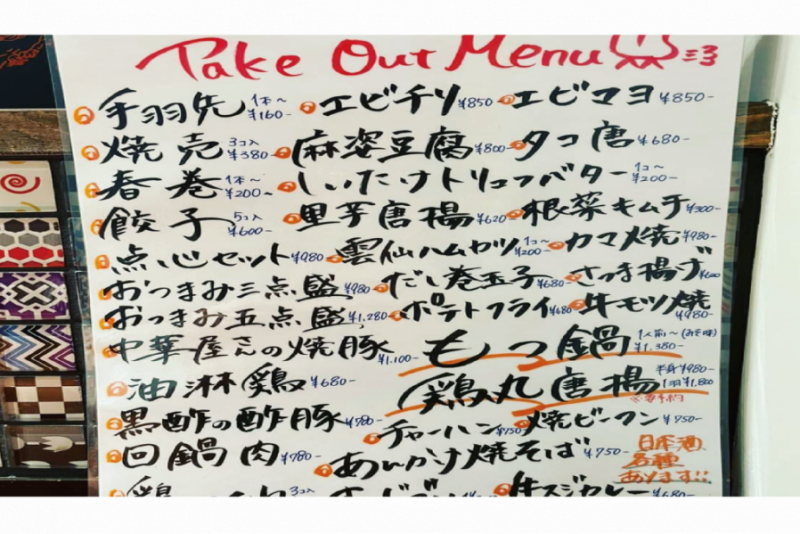 Take Out Menu
手羽先 1本～ ¥160- エビチリ ¥850 エビマヨ ¥850-
焼売 3コ入 ¥380- 麻婆豆腐 ¥800- タコ唐 ¥680-
春巻 1本～ ¥200～ しいたけトリュフバター 1コ～ ¥200-
餃子 5コ入 ¥600- 里芋唐揚 ¥620 根菜キムチ ¥300-
点心セット ¥980 雲仙ハムカツ 1コ～ ¥200- カマ焼 ¥980-
おつまみ三点盛 ¥980 だし巻玉子 ¥680- さつま揚げ ¥600
おつまみ五点盛 ¥1,280- ポテトフライ ¥680 牛モツ焼 ¥980-
中華屋さんの焼豚 ¥1,100- もつ鍋 1人前～ ¥1,380-
油淋鶏 ¥680- 鶏丸唐揚 半身¥980- 1羽¥1,800 ※要予約
黒酢の酢豚 ¥780- チャーハン ¥750 焼ビーフン ¥750-
回鍋肉 ¥780- あんかけ焼そば ¥750- 日本酒
各種
あります!!
鶏 3コ入 牛スジカレー ¥680-